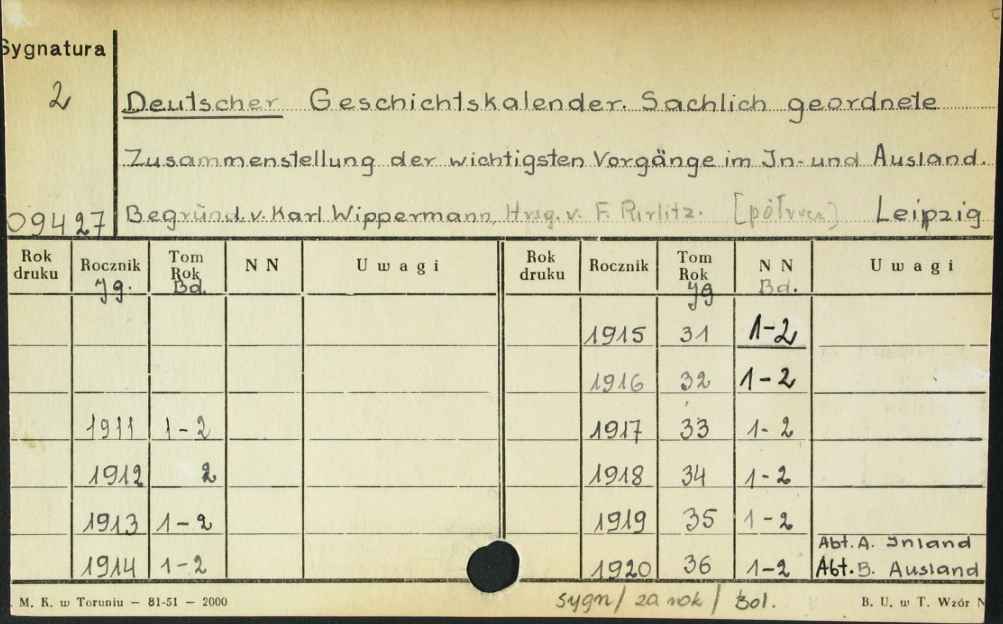 Sygnatura
2
09427
Deutscher Geschichtskalender. Sachlich geordnete
Zusammenstellung der wichtigsten Vorgänge im In- und Ausland.
Begründ. v. Karl Wippermann, Hrsg. v. F. Purlitz. Leipzig
Rok druku Rocznik Tom Rok N N Uwagi Rok druku Rocznik Tom Rok N N Uwagi
Jg. Bd. Jg Bd.
1915 31 1-2
1916 32 1-2
1911 1-2 1917 33 1-2
1912 2 1918 34 1-2
1913 1-2 1919 35 1-2
Abt. A. Inland
1914 1-2 1920 36 1-2 Abt. B. Ausland
M. K. w Toruniu — 81-51 — 2000 sygn/ za rok / Bol. B. U. w T. Wzór N